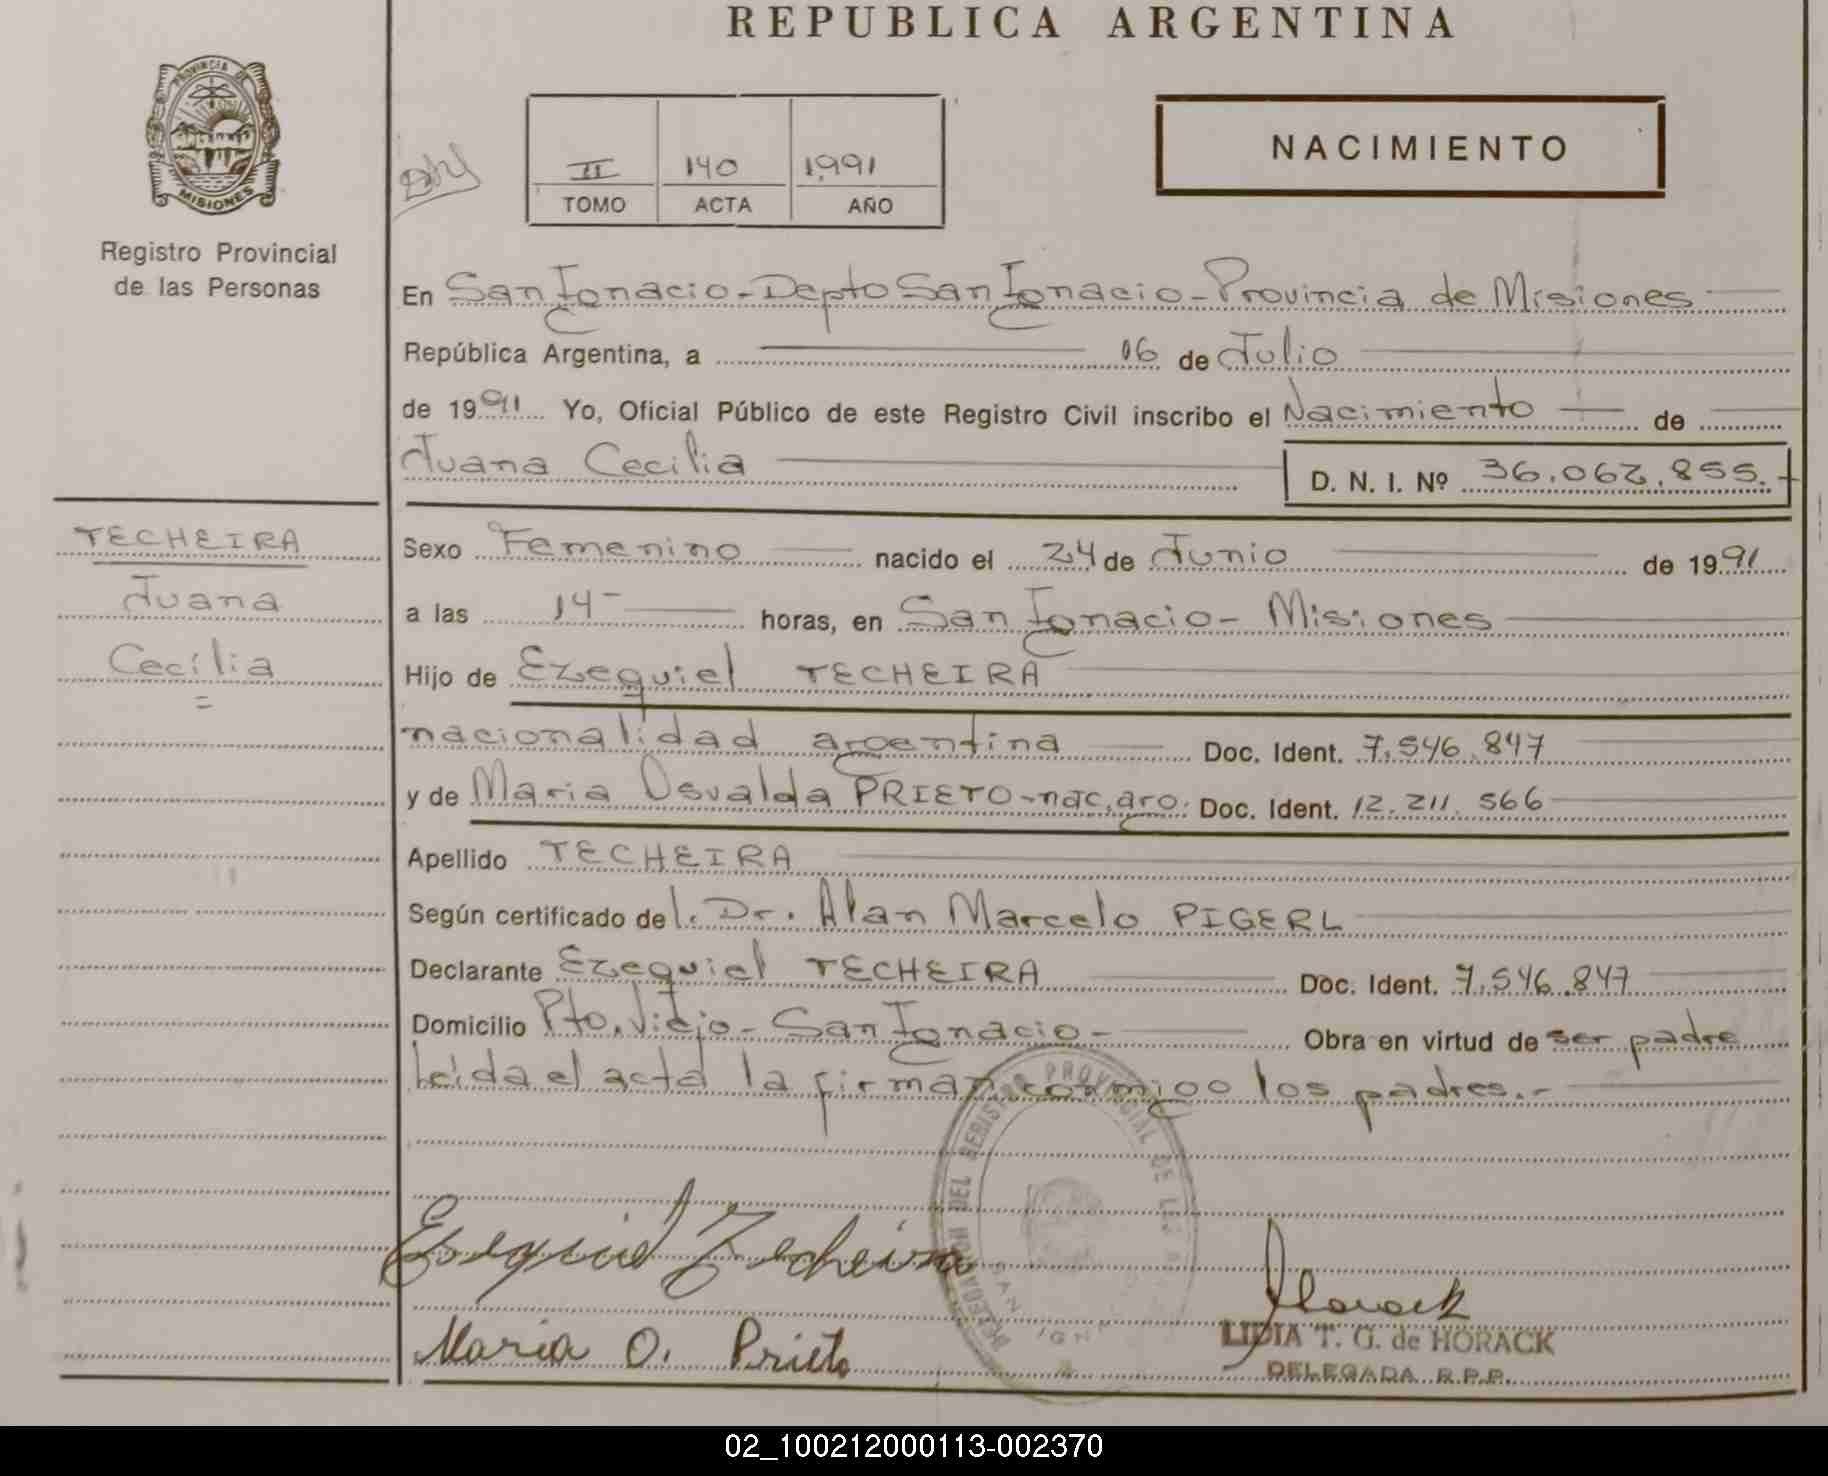 REPUBLICA ARGENTINA
PROVINCIA DE
MISIONES
Registro Provincial
de las Personas
II 140 1991
TOMO ACTA AÑO
NACIMIENTO
En San Ignacio - Depto San Ignacio - Provincia de Misiones
República Argentina, a 06 de Julio
de 1991 Yo, Oficial Público de este Registro Civil inscribo el Nacimiento de
Juana Cecilia D. N. I. Nº 36.062.855.-
TECHEIRA
Juana
Cecilia
Sexo Femenino nacido el 24 de Junio de 1991
a las 14- horas, en San Ignacio - Misiones
Hijo de Ezequiel TECHEIRA
nacionalidad argentina Doc. Ident. 7.546.847
y de Maria Osvalda PRIETO - nac. arg. Doc. Ident. 12.211.566
Apellido TECHEIRA
Según certificado del. Dr. Alan Marcelo PIGERL
Declarante Ezequiel TECHEIRA Doc. Ident. 7.546.847
Domicilio Pto. Viejo - San Ignacio - Obra en virtud de ser padre
Leida el acta la firman conmigo los padres.-
DELEGACION DEL REGISTRO PROVINCIAL DE LAS
SAN IGN
Ezequiel Techeira
Maria O. Prieto
Horack
LIDIA T. G. de HORACK
DELEGADA R.P.P.
02_100212000113-002370